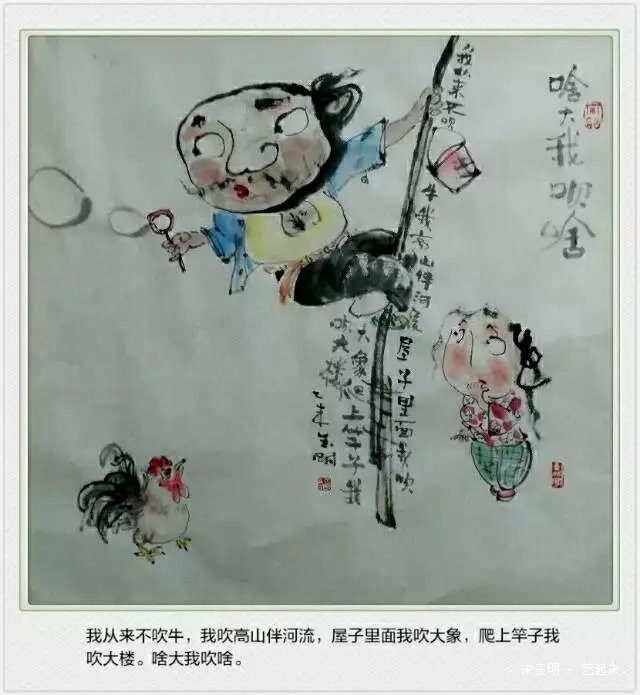 啥大我吹啥
我从来不吹
牛我高山伴河流
屋子里面我吹
大象爬上竿子我
吹大楼
乙未玉明
我从来不吹牛，我吹高山伴河流，屋子里面我吹大象，爬上竿子我
吹大楼。啥大我吹啥。
宋玉明 - 艺起来